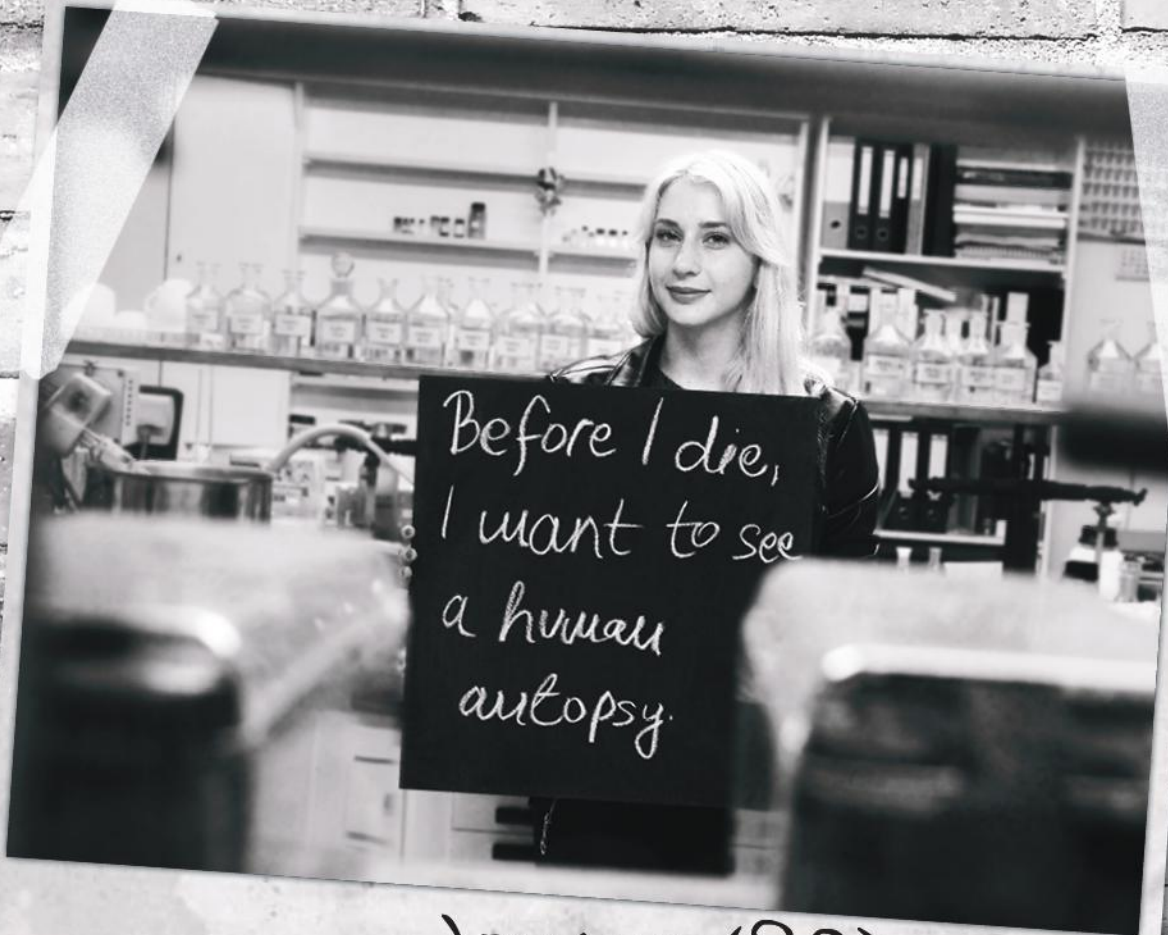 Before I die,
I want to see
a human
autopsy.